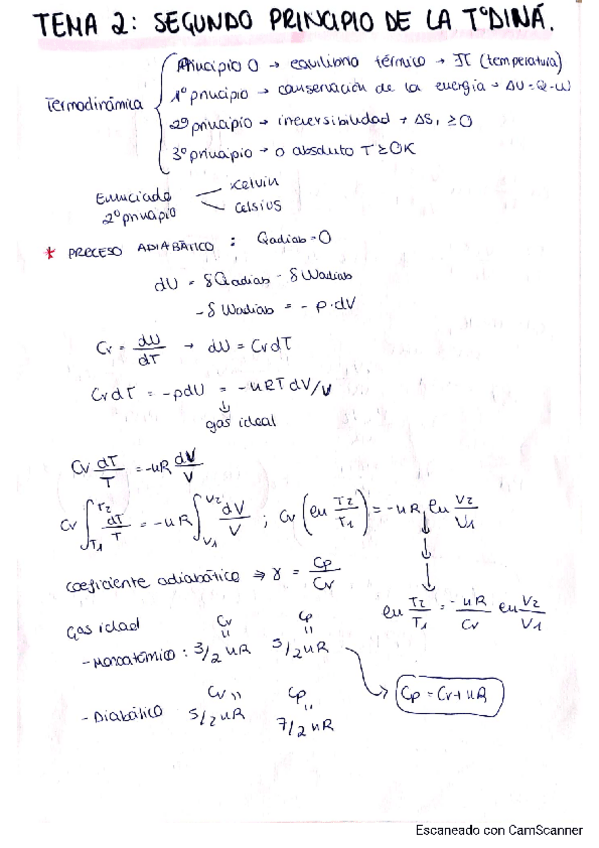 TEMA 2: SEGUNDO PRINCIPIO DE LA TºDINÁ.
Termodinámica
Principio 0 → equilibrio térmico → JT (temperatura)
1º principio → conservación de la energía → ΔU = Q - W
2º principio → irreversibilidad → ΔS, ≥ 0
3º principio → 0 absoluto T ≥ 0K
Enunciado 2º principio
Kelvin
Celsius
* PROCESO ADIABÁTICO : Qadiab = 0
dU = δQadiab - δWadiab
-δWadiab = - p·dV
Cv = dU/dT → dU = CvdT
CvdT = -pdU = -nRT dV/V
↓
gas ideal
Cv dT/T = -nR dV/V
Cv ∫_T1^T2 dT/T = -nR ∫_V1^V2 dV/V ; Cv (ln T2/T1) = -nR ln V2/V1
coeficiente adiabático ⇒ γ = Cp/Cv
ln T2/T1 = -nR/Cv ln V2/V1
Gas ideal Cv Cp
- Monoatómico : 3/2 nR 5/2 nR
Cp = Cv + nR
Cv Cp
- Diabático 5/2 nR 7/2 nR
Escaneado con CamScanner